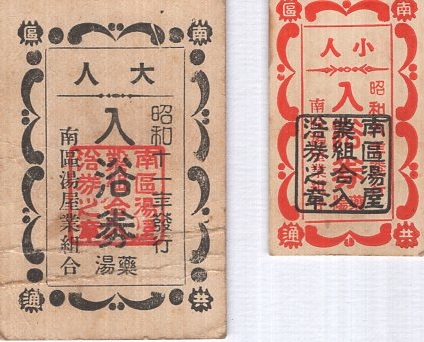 南區
大人
昭和十一年發行
入浴券
藥湯
南區湯屋業組合
南區湯屋
業組合入
浴券之章
共通
南區
小人
昭和
入浴
南區
南區湯屋
業組合入
浴券之章
共通